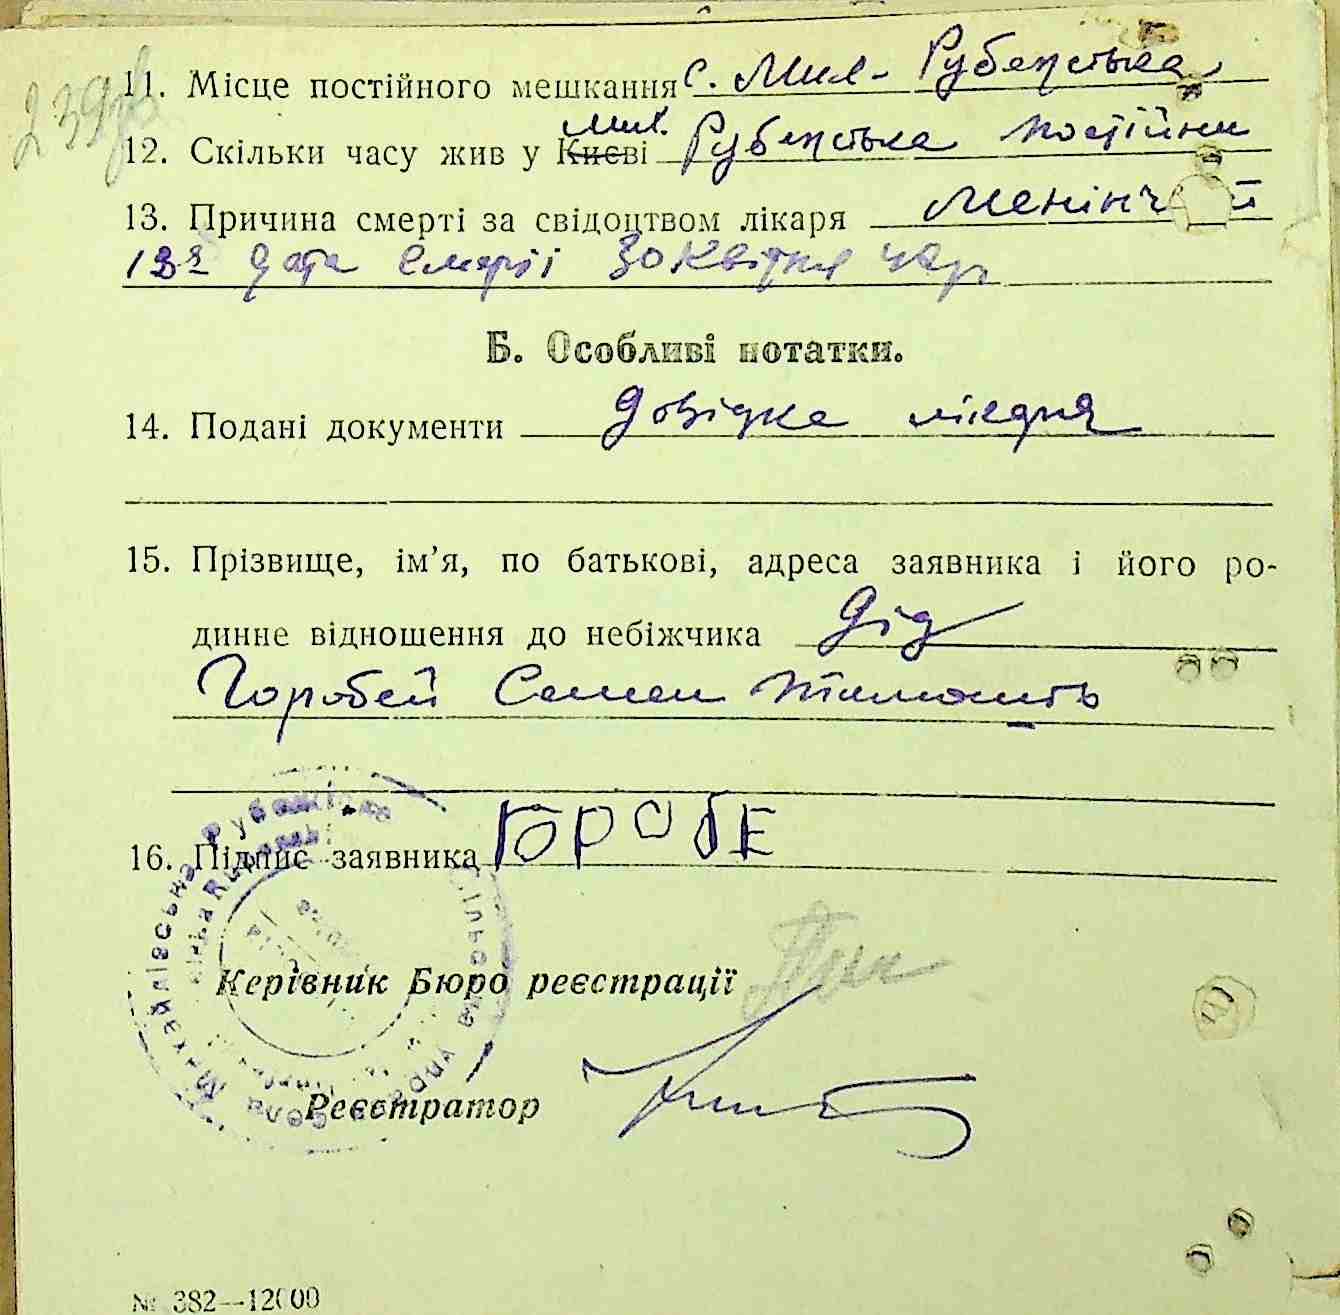 239зв
11. Місце постійного мешкання с. Мих- Рубежівка
мих.
12. Скільки часу жив у Києві Рубежівка постійно
13. Причина смерті за свідоцтвом лікаря
дата смерті 30 квітня
Б. Особливі нотатки.
14. Подані документи довідка лікаря
15. Прізвище, ім'я, по батькові, адреса заявника і його ро-
динне відношення до небіжчика Дід
Горобей Семен
16. Підпис заявника ГОРОБЕ
Керівник Бюро реєстрації
Реєстратор
№ 382—12000